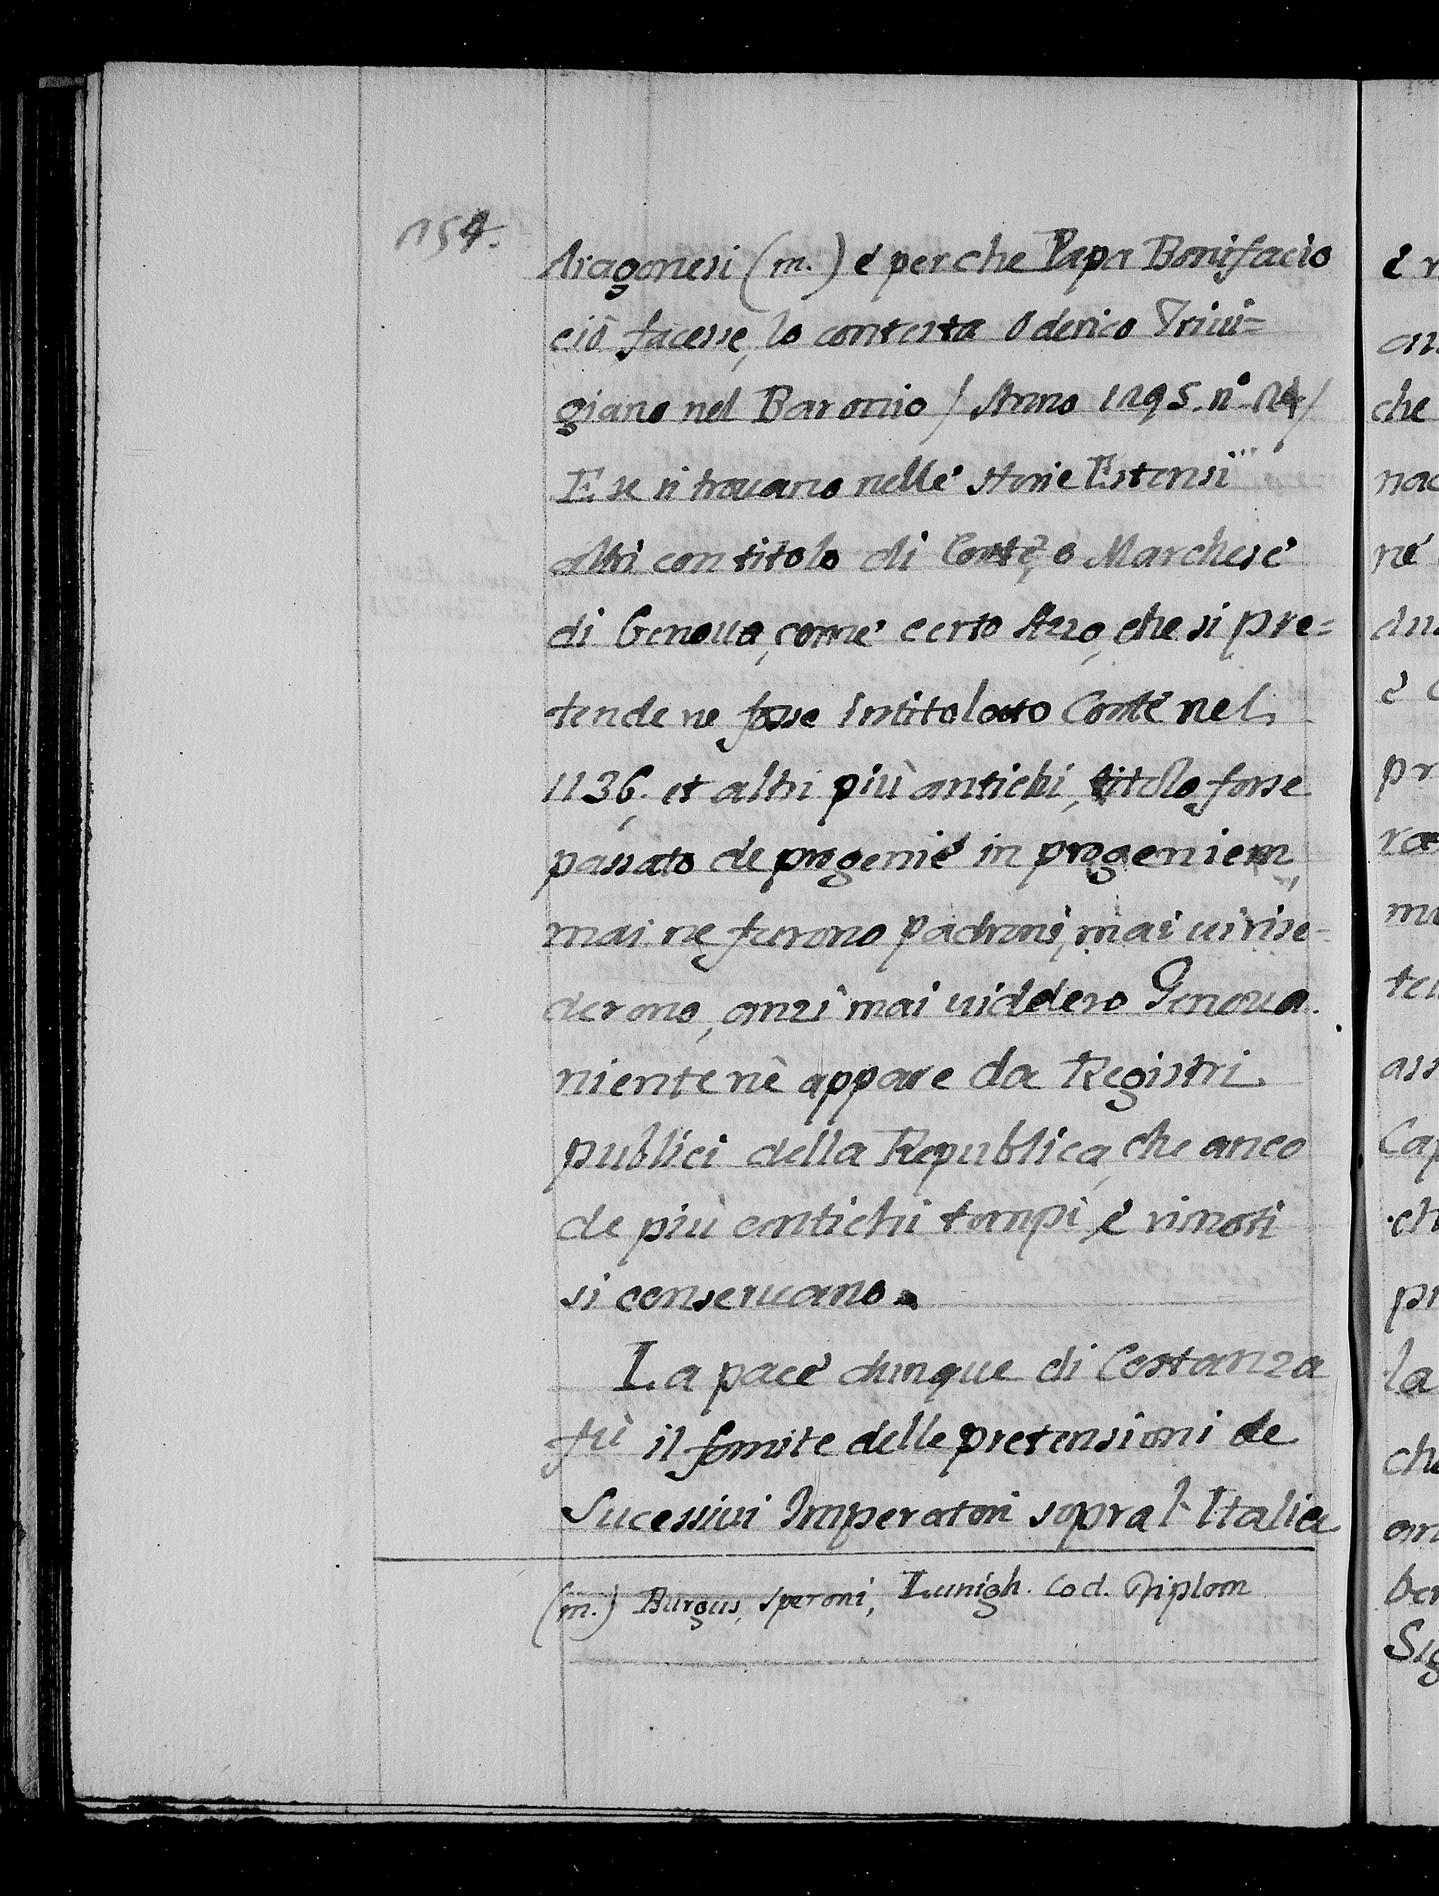 154.
Aragonesi (m.) é perche Papa Bonifacio
ciò facesse, lo contesta Oderico Triui=
giano nel Baronio / Anno 1295. n.° 24/
E se si trouano nellé storie Estensi
altri con titolo di Conté, o Marchesé
di Genoua, comé certo Azzo, che si pre=
tende ne fosse Intitolato Conté nel
1136. et altri più antichi, titolo forse
passato de progenié in progeniem,
mai ne furono padroni, mai ui rise=
derono, anzi mai uiddero Genoua.
niente nè appare da Registri
publici della Republica, che anco
de più antichi tempi, é rimoti
si conseruano.
La pacé dunque di Costanza
fù il fomite delle pretensioni de
Sucessiui Imperatori sopra l'Italia
(m.) Burgus, Speroni, Lunigh. Cod. Diplom